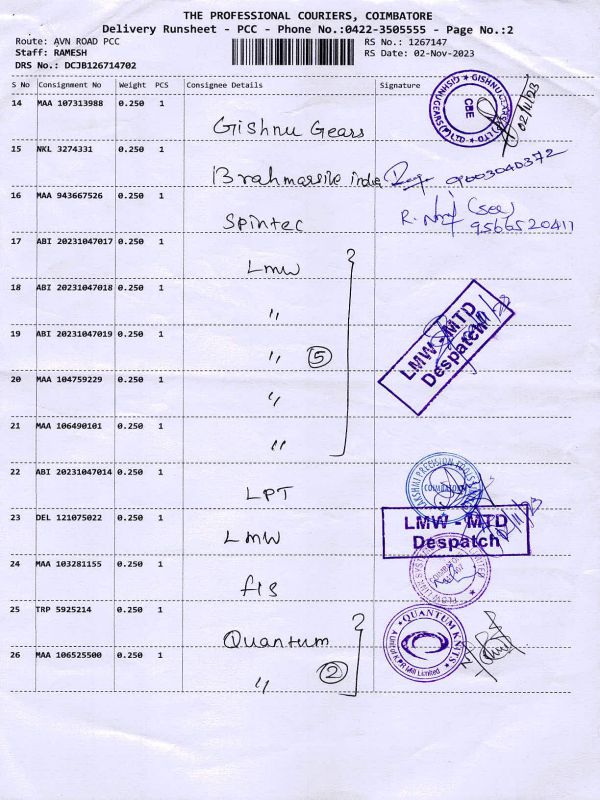 THE PROFESSIONAL COURIERS, COIMBATORE
Delivery Runsheet - PCC - Phone No.:0422-3505555 - Page No.:2
Route: AVN ROAD PCC RS No.: 1267147
Staff: RAMESH RS Date: 02-Nov-2023
DRS No.: DCJB126714702
S No Consignment No Weight PCS Consignee Details Signature
14 MAA 107313988 0.250 1 Gishnu Gears CBE 02/11/23
15 NKL 3274331 0.250 1 Brahmassite india 9003040372
16 MAA 943667526 0.250 1 Spintec R. (SOE) 9566520411
17 ABI 20231047017 0.250 1 Lmw
18 ABI 20231047018 0.250 1 "
19 ABI 20231047019 0.250 1 " 5 LMW - MTD Despatch
20 MAA 104759229 0.250 1 "
21 MAA 106490101 0.250 1 "
22 ABI 20231047014 0.250 1 LPT LAKSHMI PRECISION TOOLS COIMBATORE
23 DEL 121075022 0.250 1 LMW LMW - MTD Despatch
24 MAA 103281155 0.250 1 fls
25 TRP 5925214 0.250 1 Quantum QUANTUM KNITS A Unit of K.P.R Mill Limited
26 MAA 106525500 0.250 1 " 2